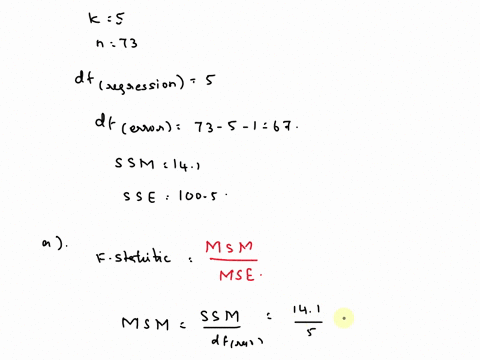 k = 5
n = 73
df (regression) = 5
df (error) = 73 - 5 - 1 = 67.
SSM = 14.1
SSE = 100.5.
a). F-statistic = MSM / MSE.
MSM = SSM / df(reg) = 14.1 / 5